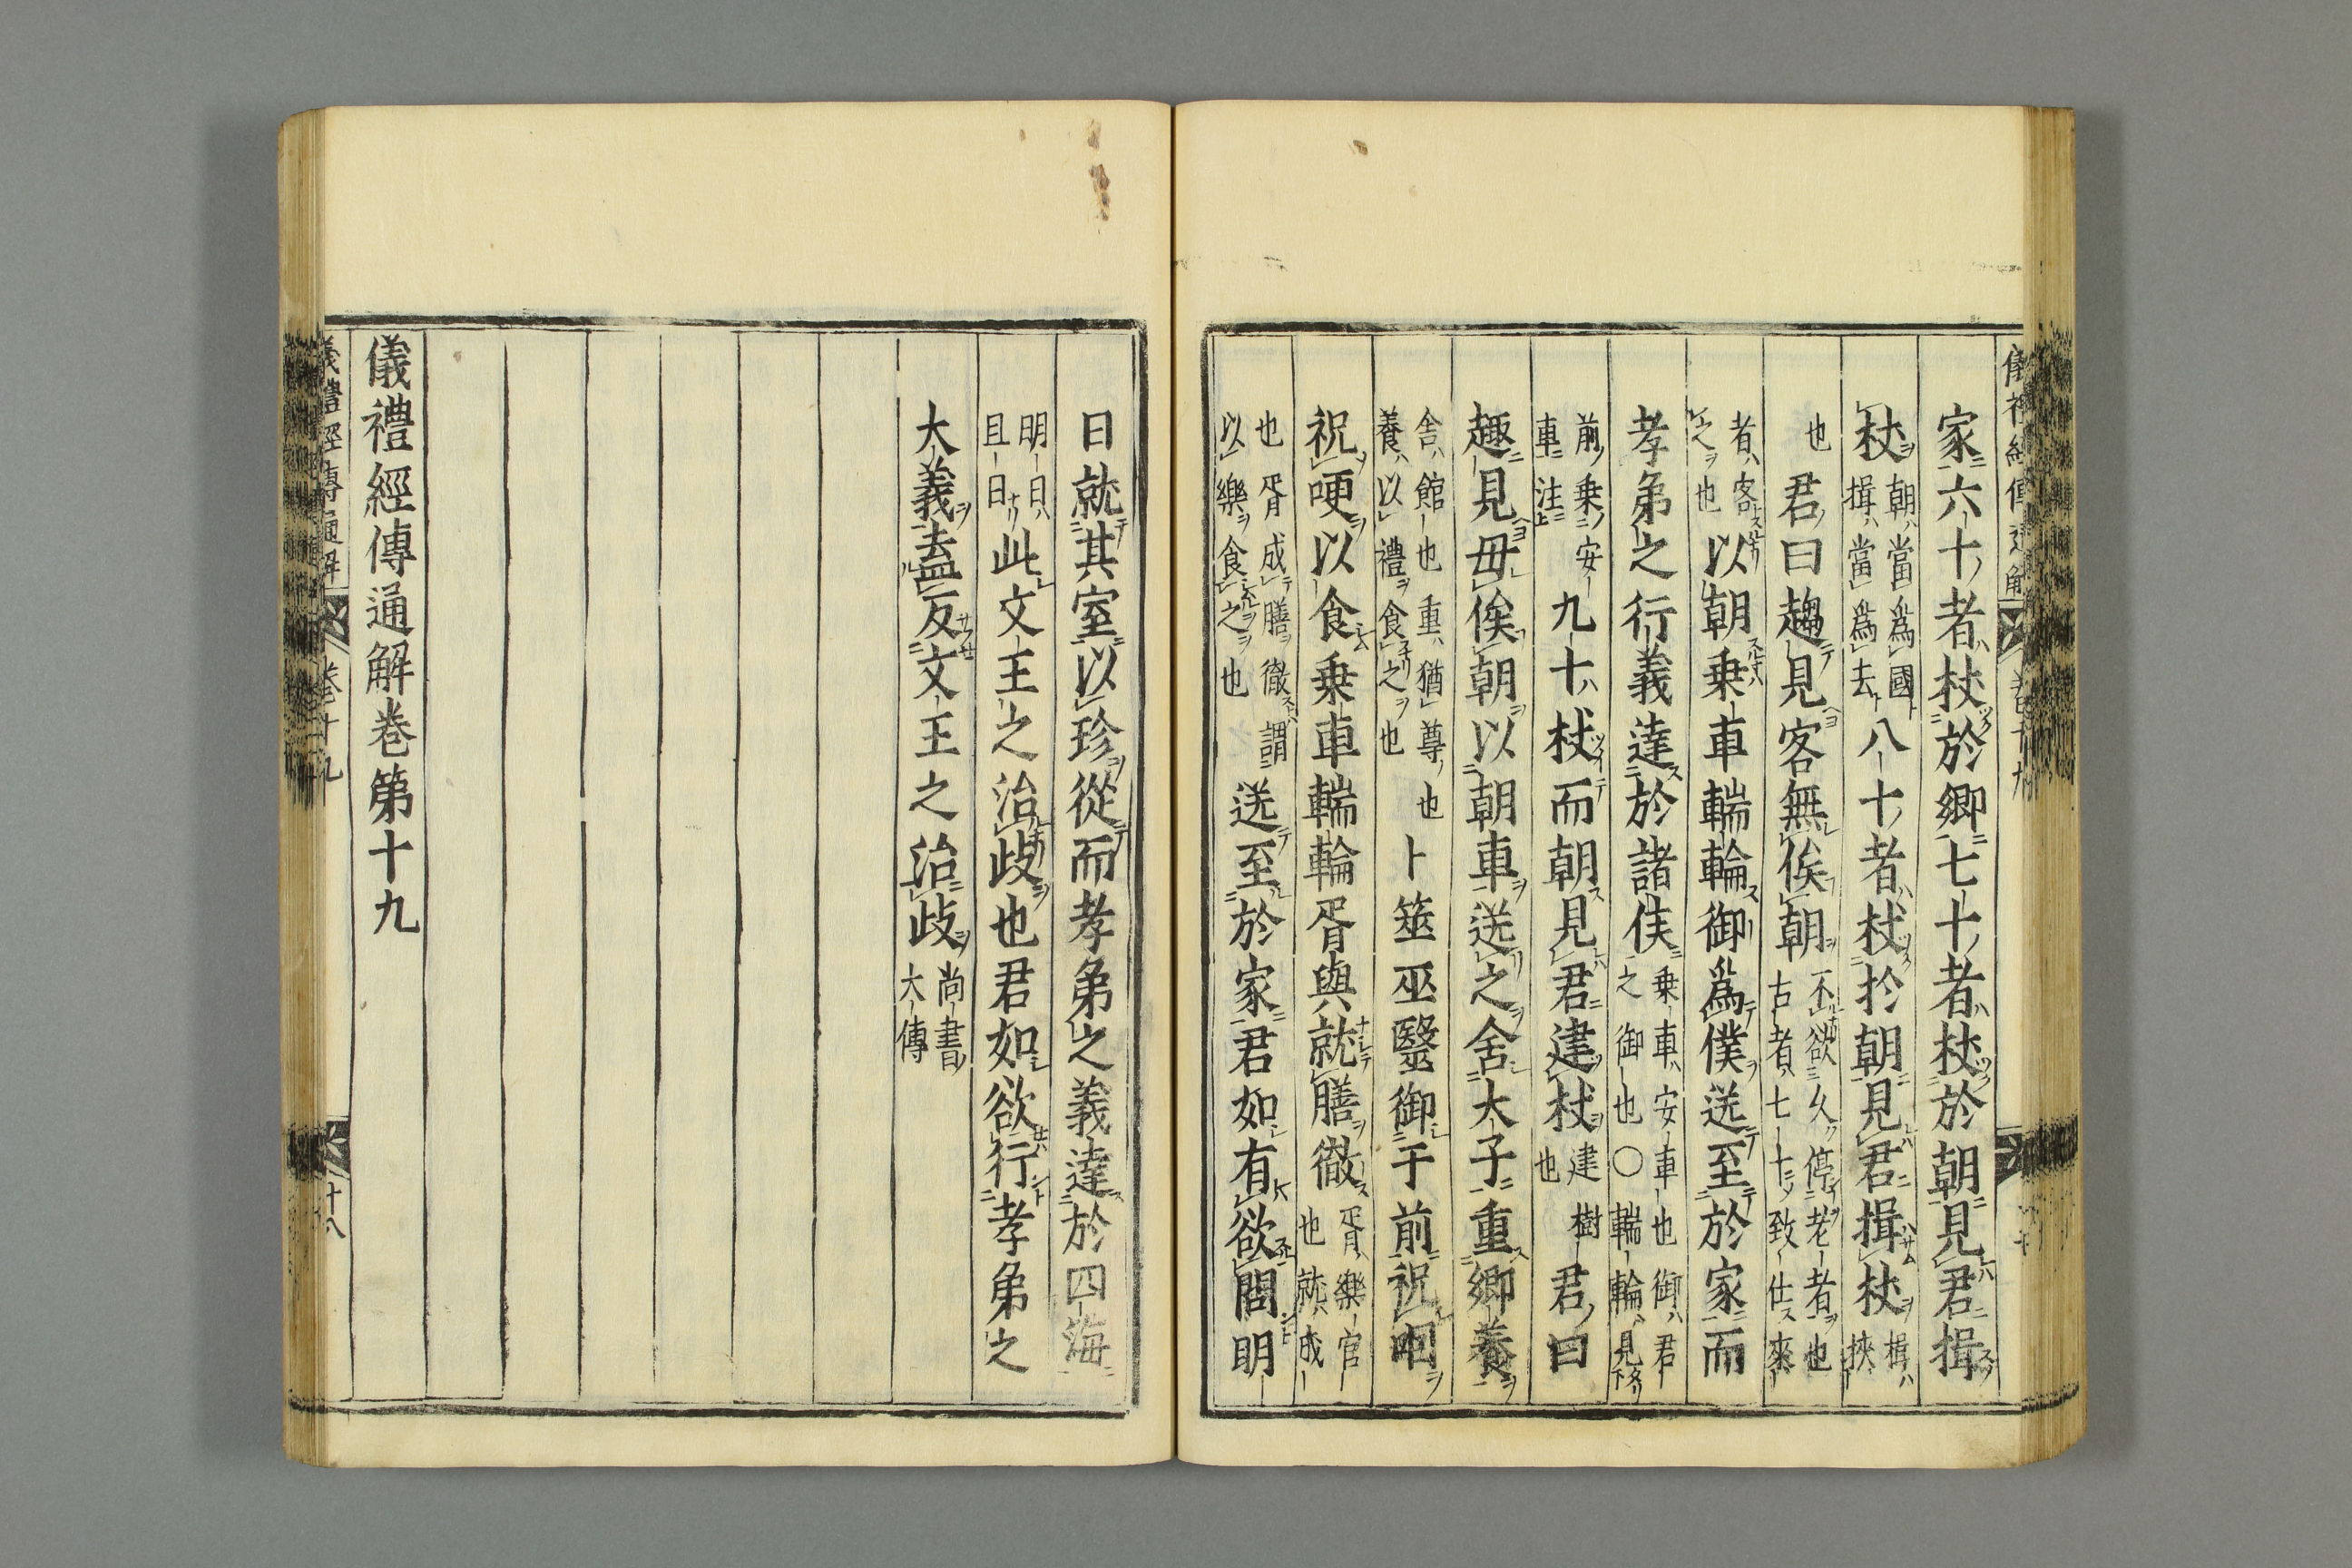 家六十者杖於鄉七十者杖於朝見君揖
杖朝當爲國揖當爲去八十者杖於朝見君揖杖揖挾
也君曰趨見客無俟朝不欲久停老者也古者七十致仕來
者客之也以朝乗車輲輪御爲僕送至於家而
孝弟之行義達於諸侯乗車安車也御君之御也〇輲輪見下
前乗安車注九十杖而朝見君建杖建樹也君曰
趣見毋俟朝以朝車送之舍大子重鄉養
舎館也重猶尊也養以禮食之也卜筮巫醫御于前祝咽
祝哽以食乗車輲輪胥與就膳徹胥樂官也就成
也胥成膳徹謂以樂食之也送至於家君如有欲問明
日就其室以珍從而孝弟之義達於四海
明日且日此文王之治歧也君如欲行孝弟之
大義盍反文王之治歧尚書大傳
儀禮經傳通解卷第十九
儀禮經傳通解 卷十九 十八